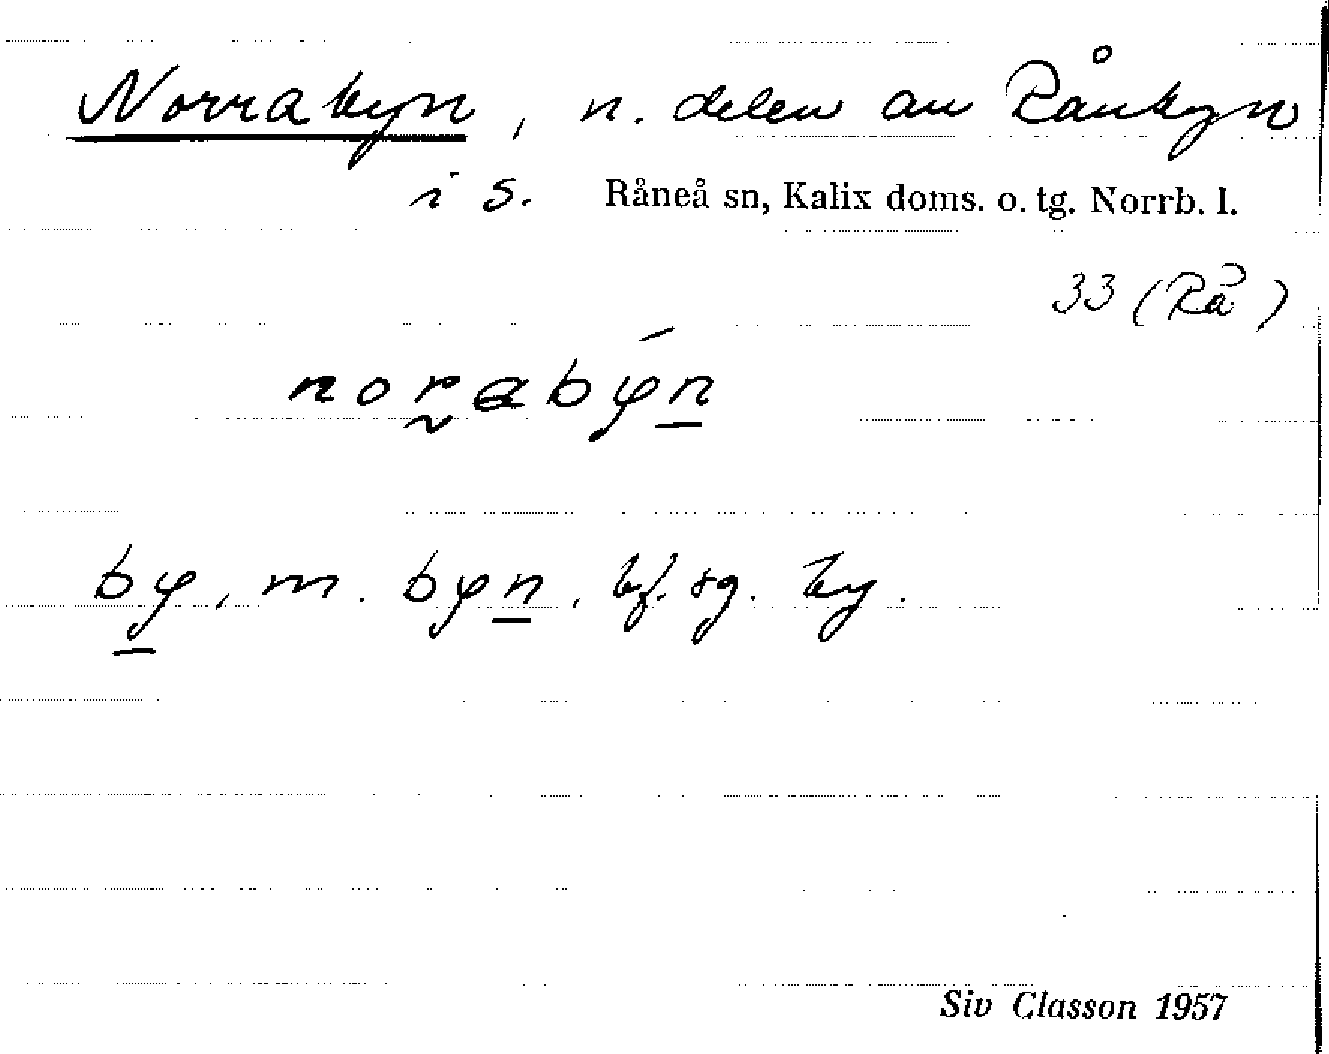 Norrabyn, n. delen av Rånbyn
i s. Råneå sn, Kalix doms. o. tg. Norrb. l.
33 (Rå)
norabýn
by, m. byn, bf. sg. by.
Siv Classon 1957